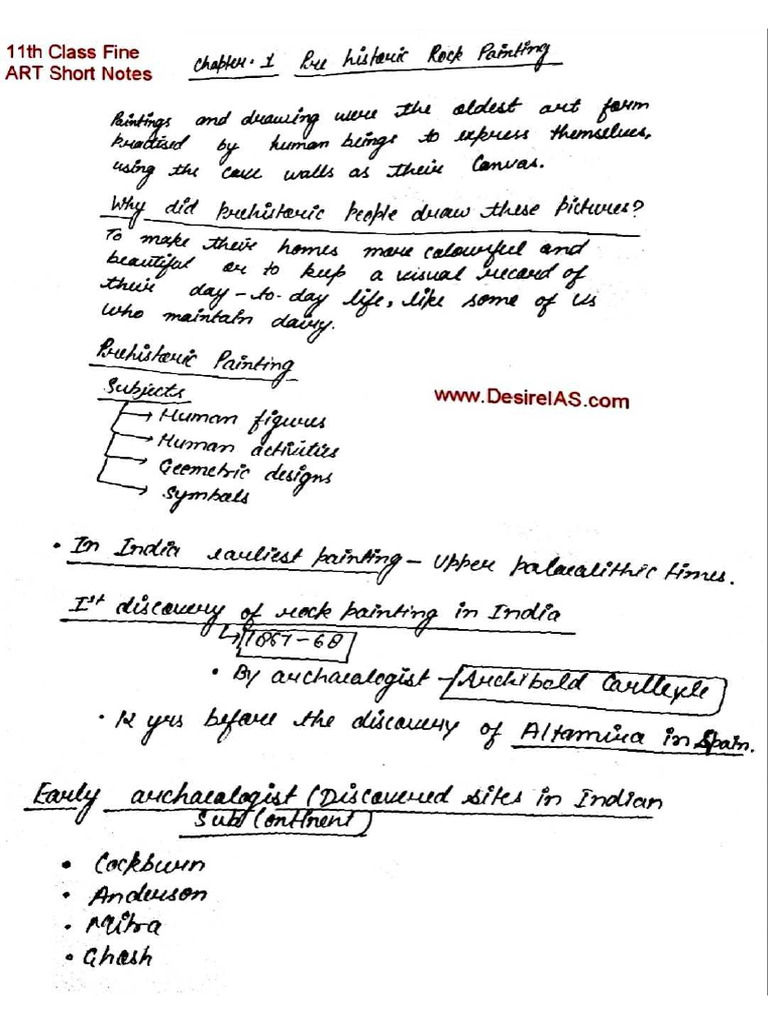 11th Class Fine
ART Short Notes
Chapter. 1 Pre historic Rock Painting
Paintings and drawing were the oldest art form
practised by human beings to express themselves,
using the cave walls as their Canvas.
Why did prehistoric people draw these pictures?
To make their homes more colourful and
beautiful or to keep a visual record of
their day-to-day life, like some of us
who maintain dairy.
Prehistoric Painting
Subjects
www.DesireIAS.com
→ Human figures
→ Human activities
→ Geometric designs
→ Symbols
• In India earliest painting – Upper palaealithic times.
Ist discovery of rock painting in India
↳ 1867-68
• By archaeologist – Archibold Carlleyle
• 12 yrs before the discovery of Altamira in Spain.
Early archaeologist (Discovered sites in Indian
Sub Continent)
• Cockburn
• Anderson
• Mitra
• Ghosh